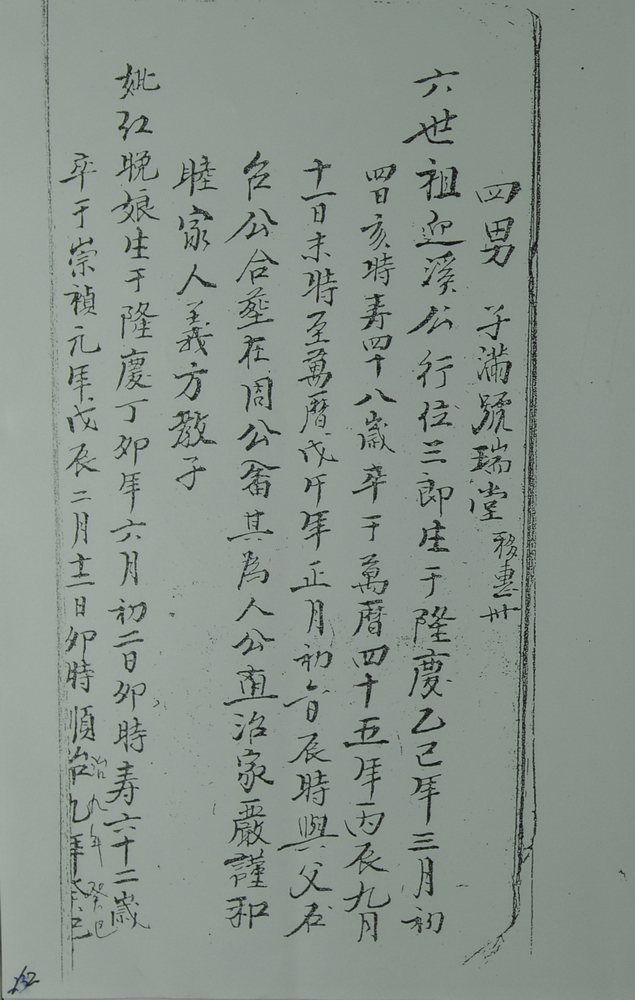 四男 子滿號瑞堂 移惠州
六世祖迎溪公行位三郎生于隆慶乙巳年三月初
四日亥時寿四十八歲卒于萬曆四十五年丙辰九月
十一日未時至萬曆戊午年正月初六日辰時與父石
台公合塟在周公畬其為人公直治家嚴謹和
睦家人義方教子
妣江晚娘生于隆慶丁卯年六月初二日卯時寿六十二歲
卒于崇禎元年戊辰二月十二日卯時順治九年癸巳
治九年癸巳
132